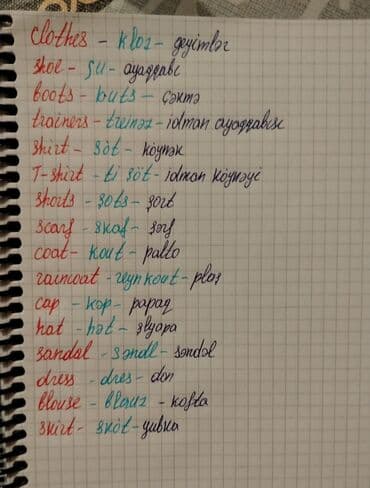 clothes - kloz - geyimlər
shoe - şu - ayaqqabı
boots - buts - çəkmə
trainers - treinəz - idman ayaqqabısı
shirt - şöt - köynək
T-shirt - ti şöt - idman köynəyi
shorts - şots - şort
scarf - skaf - şərf
coat - kout - palto
raincoat - reynkout - plaş
cap - kəp - papaq
hat - hət - şlyapa
sandal - səndl - səndəl
dress - dres - don
blouse - blauz - kofta
skirt - sköt - yubka